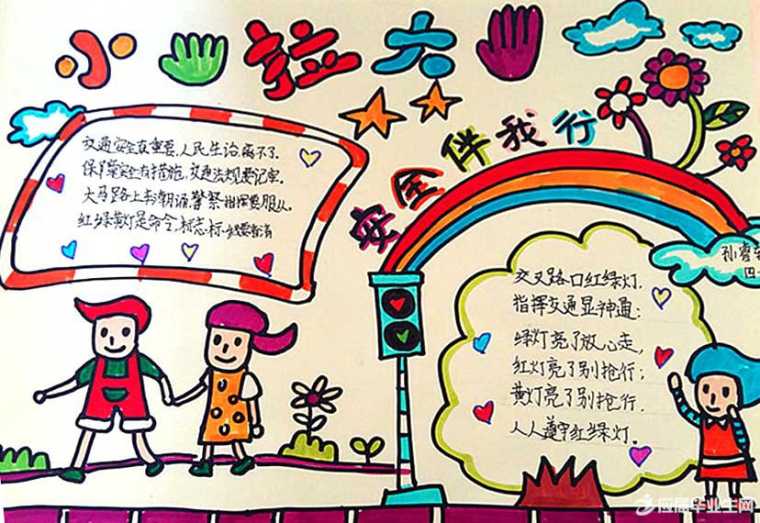 小拉大
安全伴我行
交通安全真重要,人民生活离不了.
保障安全有措施,交通法规要记牢.
大马路上,警察指挥要服从.
红绿黄灯是命令,标志标线要看清
孙
四
交叉路口红绿灯.
指挥交通显神通;
绿灯亮了放心走,
红灯亮了别抢行;
黄灯亮了别抢行.
人人遵守红绿灯.
应届毕业生网